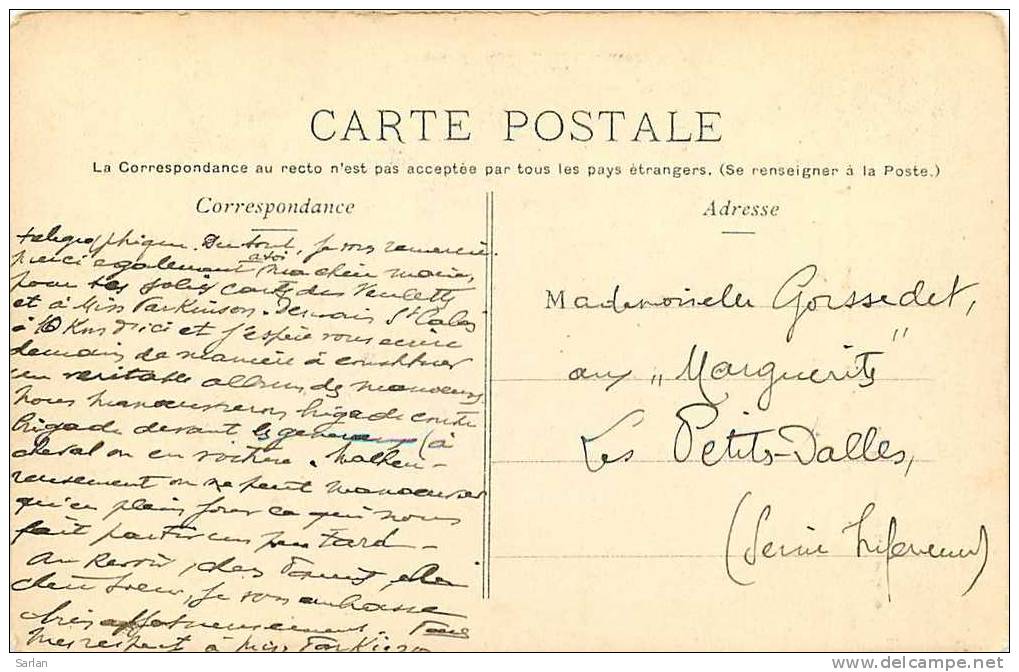 CARTE POSTALE
La Correspondance au recto n'est pas acceptée par tous les pays étrangers. (Se renseigner à la Poste.)
Correspondance
telegraphique. Du tout, je vous remercie
merci également à toi ma chère
pour tes jolies cartes des Veulettes
et à Miss Parkinson. Demain St Calais
à 10 Kms d'ici et j'espère vous écrire
demain de manière à constituer
un veritable album de manoeuvres
Nous manoeuvrerons brigade contre
brigade devant les généraux (à
cheval ou en voiture. Malheu-
reusement on ne peut manoeuvrer
qu'en plein jour ce qui nous
fait partir un peu tard -
Au Revoir, chers Parents,
je vous embrasse
très affectueusement.
Mes respects à Miss Parkinson
Adresse
Mademoiselle Gossedet,
aux „Marguerites"
Les Petites-Dalles,
(Seine Inférieure)
Sarlan
www.delcampe.net